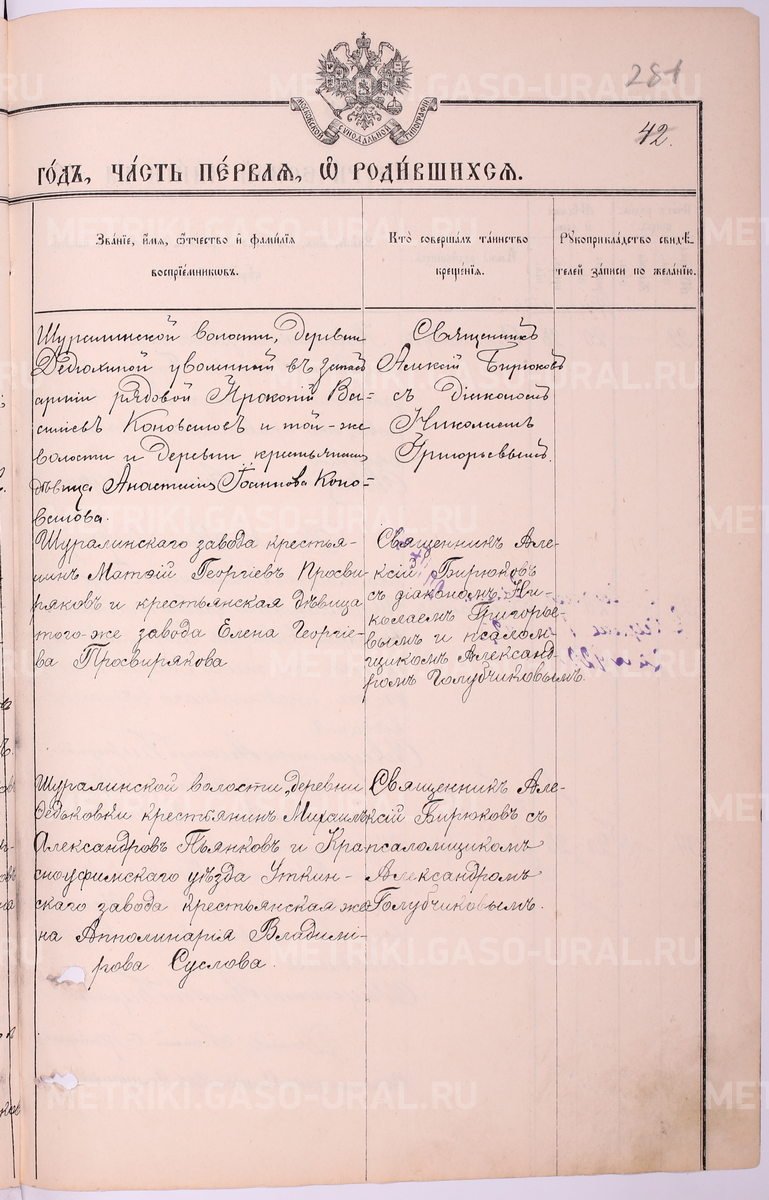 281
42.
МОСКОВСКОЙ СУНОДАЛЬНОЙ ТИПОГРАФІИ
го́дъ, ча́сть пе́рвая, ѡ҆ роди́вшихся.
Зва́нїе, и҆́мя, ѻ҆́тчество и҆ фами́лїя
воспрїе́мникѡвъ.
Кто̀ соверша́лъ та́инство
креще́нїя.
Рꙋкоприкла́дство свидѣ́-
телей за́писи по жела́нїю.
Шуралинской волости, деревни
Дедюхиной уволенный въ запасъ
арміи рядовой Прокопій Ва-
сильевъ Коноваловъ и той-же
волости и деревни крестьянская
дѣвица Анастасія Іоаннова Коно-
валова.
Священникъ
Алексій Бирюковъ
съ діакономъ
Николаемъ
Григорьевымъ.
Шуралинскаго завода крестья-
нинъ Матѳій Георгіевъ Просви-
ряковъ и крестьянская дѣвица
того-же завода Елена Георгіе-
ва Просвирякова
Священникъ Але-
ксій Бирюковъ
съ діакономъ Ни-
колаемъ Григорье-
вымъ и псалом-
щикомъ Александ-
ромъ Голубчиковымъ.
Шуралинской волости, деревни
Федьковки крестьянинъ Михаилъ
Александровъ Пьянковъ и Кра-
сноуфимскаго уѣзда Уткин-
скаго завода крестьянская же-
на Апполинарія Владимі-
рова Суслова.
Священникъ Але-
ксій Бирюковъ съ
псаломщикомъ
Александромъ
Голубчиковымъ.
METRIKI.GASO-URAL.RU